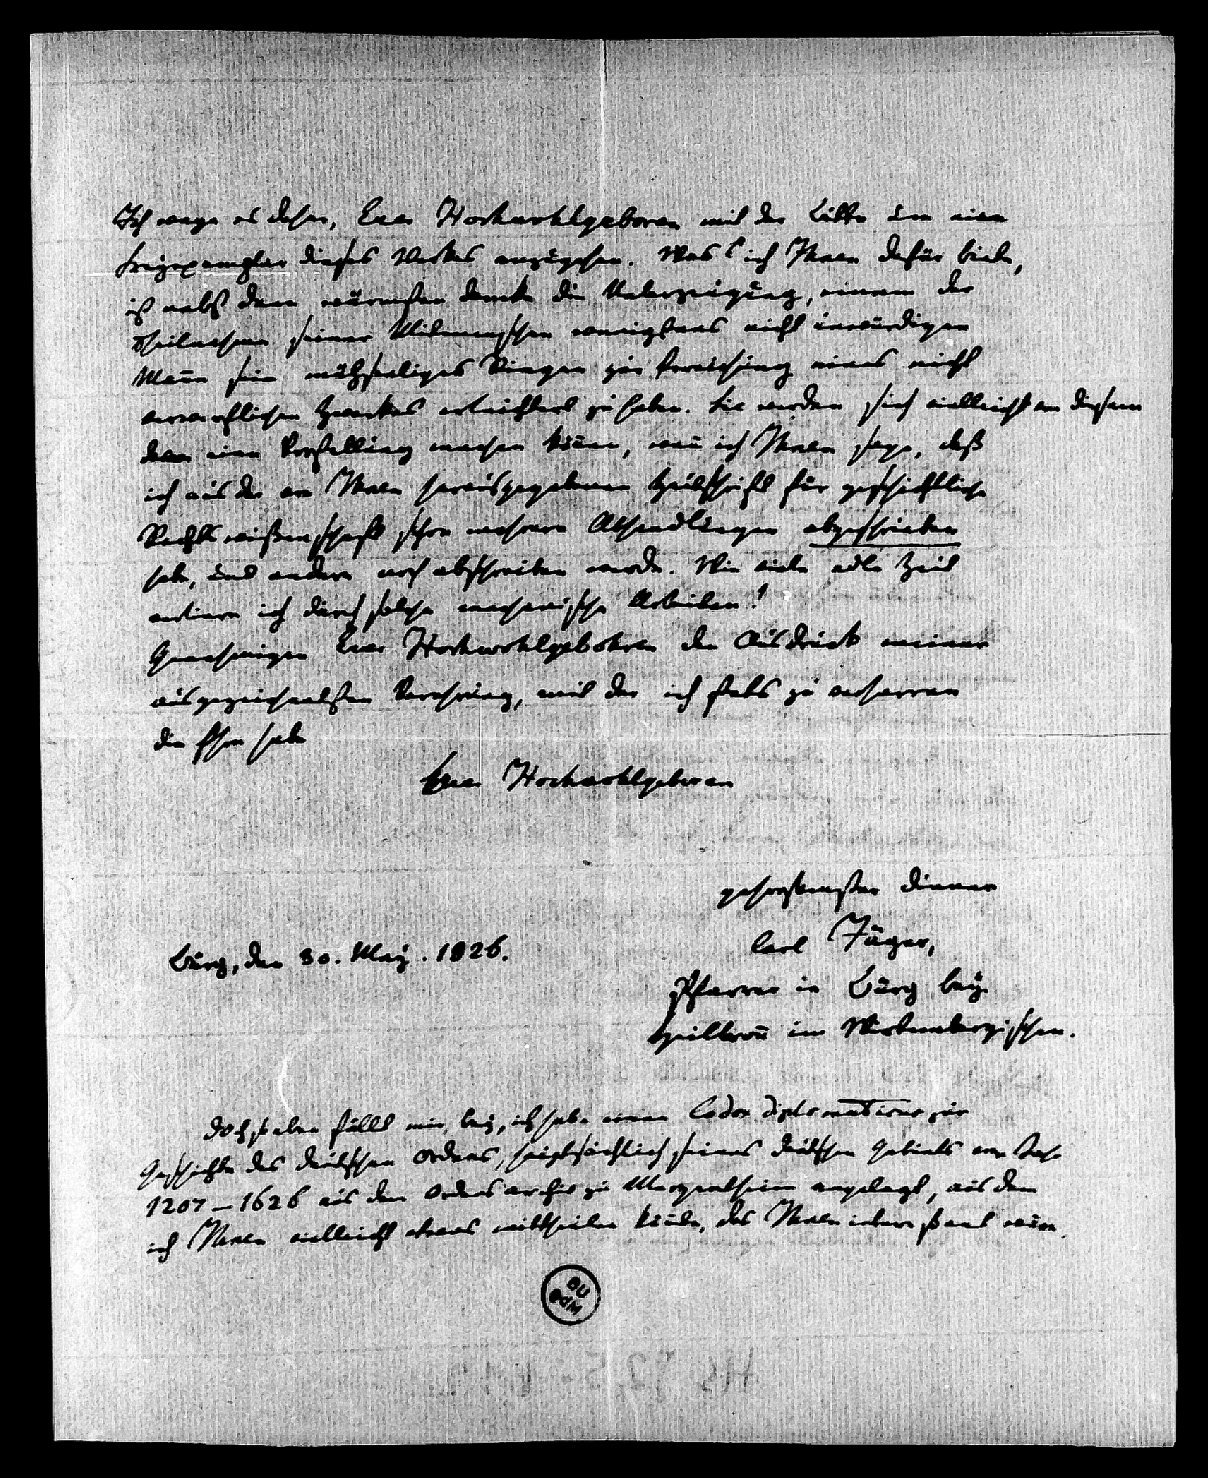 Ich wage es daher, Euer Hochwohlgeboren mit der Bitte um ein
Freyexemplar dieses Werkes anzugehen. Was ich Ihnen dafür biete,
ist nebst dem wärmsten Danke die Ueberzeugung, einem der
Theilnahme seiner Mitmenschen wenigstens nicht unwürdigen
Mann sein mühseeliges Ringen zur Erreichung eines nicht
verwerflichen Zweckes erleichtert zu haben. Sie werden sich vielleicht von diesem
dem eine Vorstellung machen können, wenn ich Ihnen sage, daß
ich aus der von Ihnen herausgegebenen Zeitschrift für geschichtliche
Rechtswissenschaft schon mehrere Abhandlungen abgeschrieben
habe, und andere noch abschreiben werde. Wie viele edle Zeit
verliere ich durch solche mechanische Arbeiten!
Genehmigen Euer Hochwohlgebohren den Ausdruck meiner
ausgezeichnetsten Verehrung, mit der ich stets zu verharren
die Ehre habe
Euer Hochwohlgeboren
gehorsamster Diener
Carl Jäger,
Burg, den 30. May. 1826.
Pfarrer in Bürg bey
Heilbronn im Wirtembergischen.
Doch so eben fällt mir bey, ich habe einen Codex diplomaticus zur
Geschichte des deutschen Ordens, hauptsächlich seines deutschen Gebiets von
1207–1626 aus dem Ordensarchiv zu Mergentheim angelegt, aus dem
ich Ihnen vielleicht etwas mittheilen könnte, das Ihnen interessant wäre.